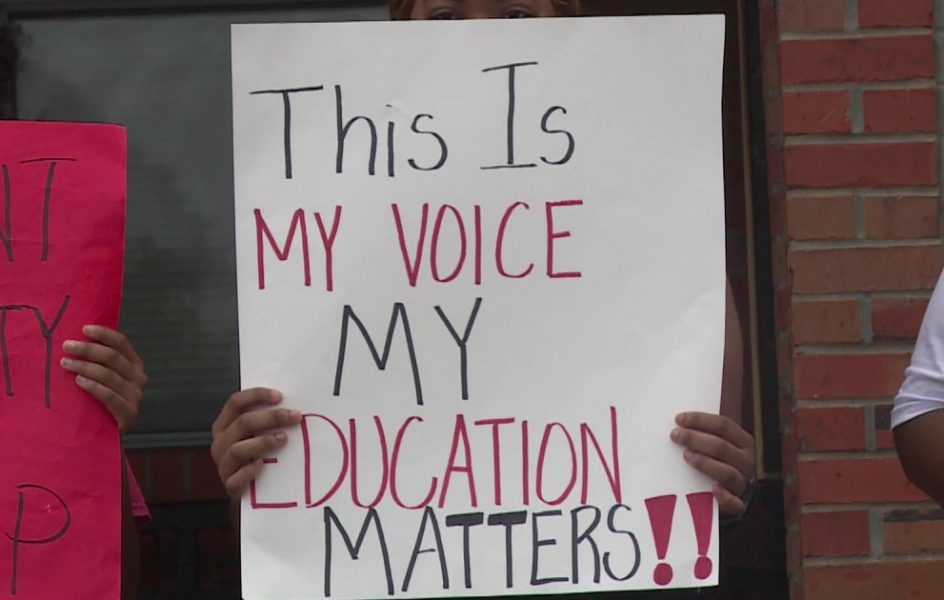 This Is
MY VOICE
MY
EDUCATION
MATTERS!!